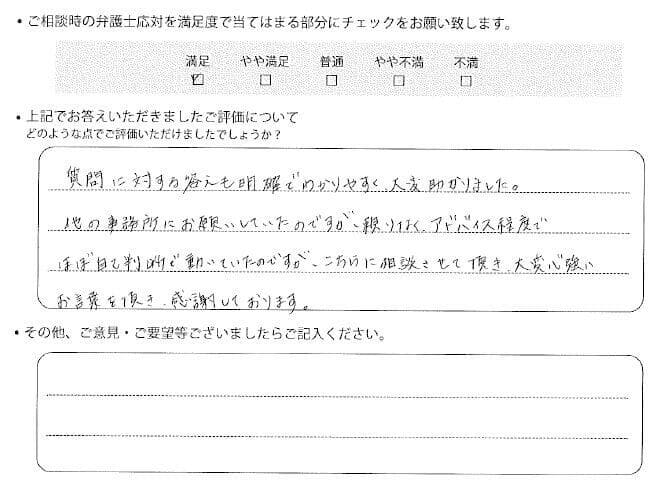 ・ご相談時の弁護士応対を満足度で当てはまる部分にチェックをお願い致します。
満足 やや満足 普通 やや不満 不満
☑ □ □ □ □
・上記でお答えいただきましたご評価について
どのような点でご評価いただけましたでしょうか？
質問に対する答えも明確でわかりやすく、大変助かりました。
他の事務所にお願いしていたのですが、頼りなく、アドバイス程度で
ほぼ自己判断で動いていたのですが、こちらに相談させて頂き、大変心強い
お言葉を頂き、感謝しております。
・その他、ご意見・ご要望等ございましたらご記入ください。